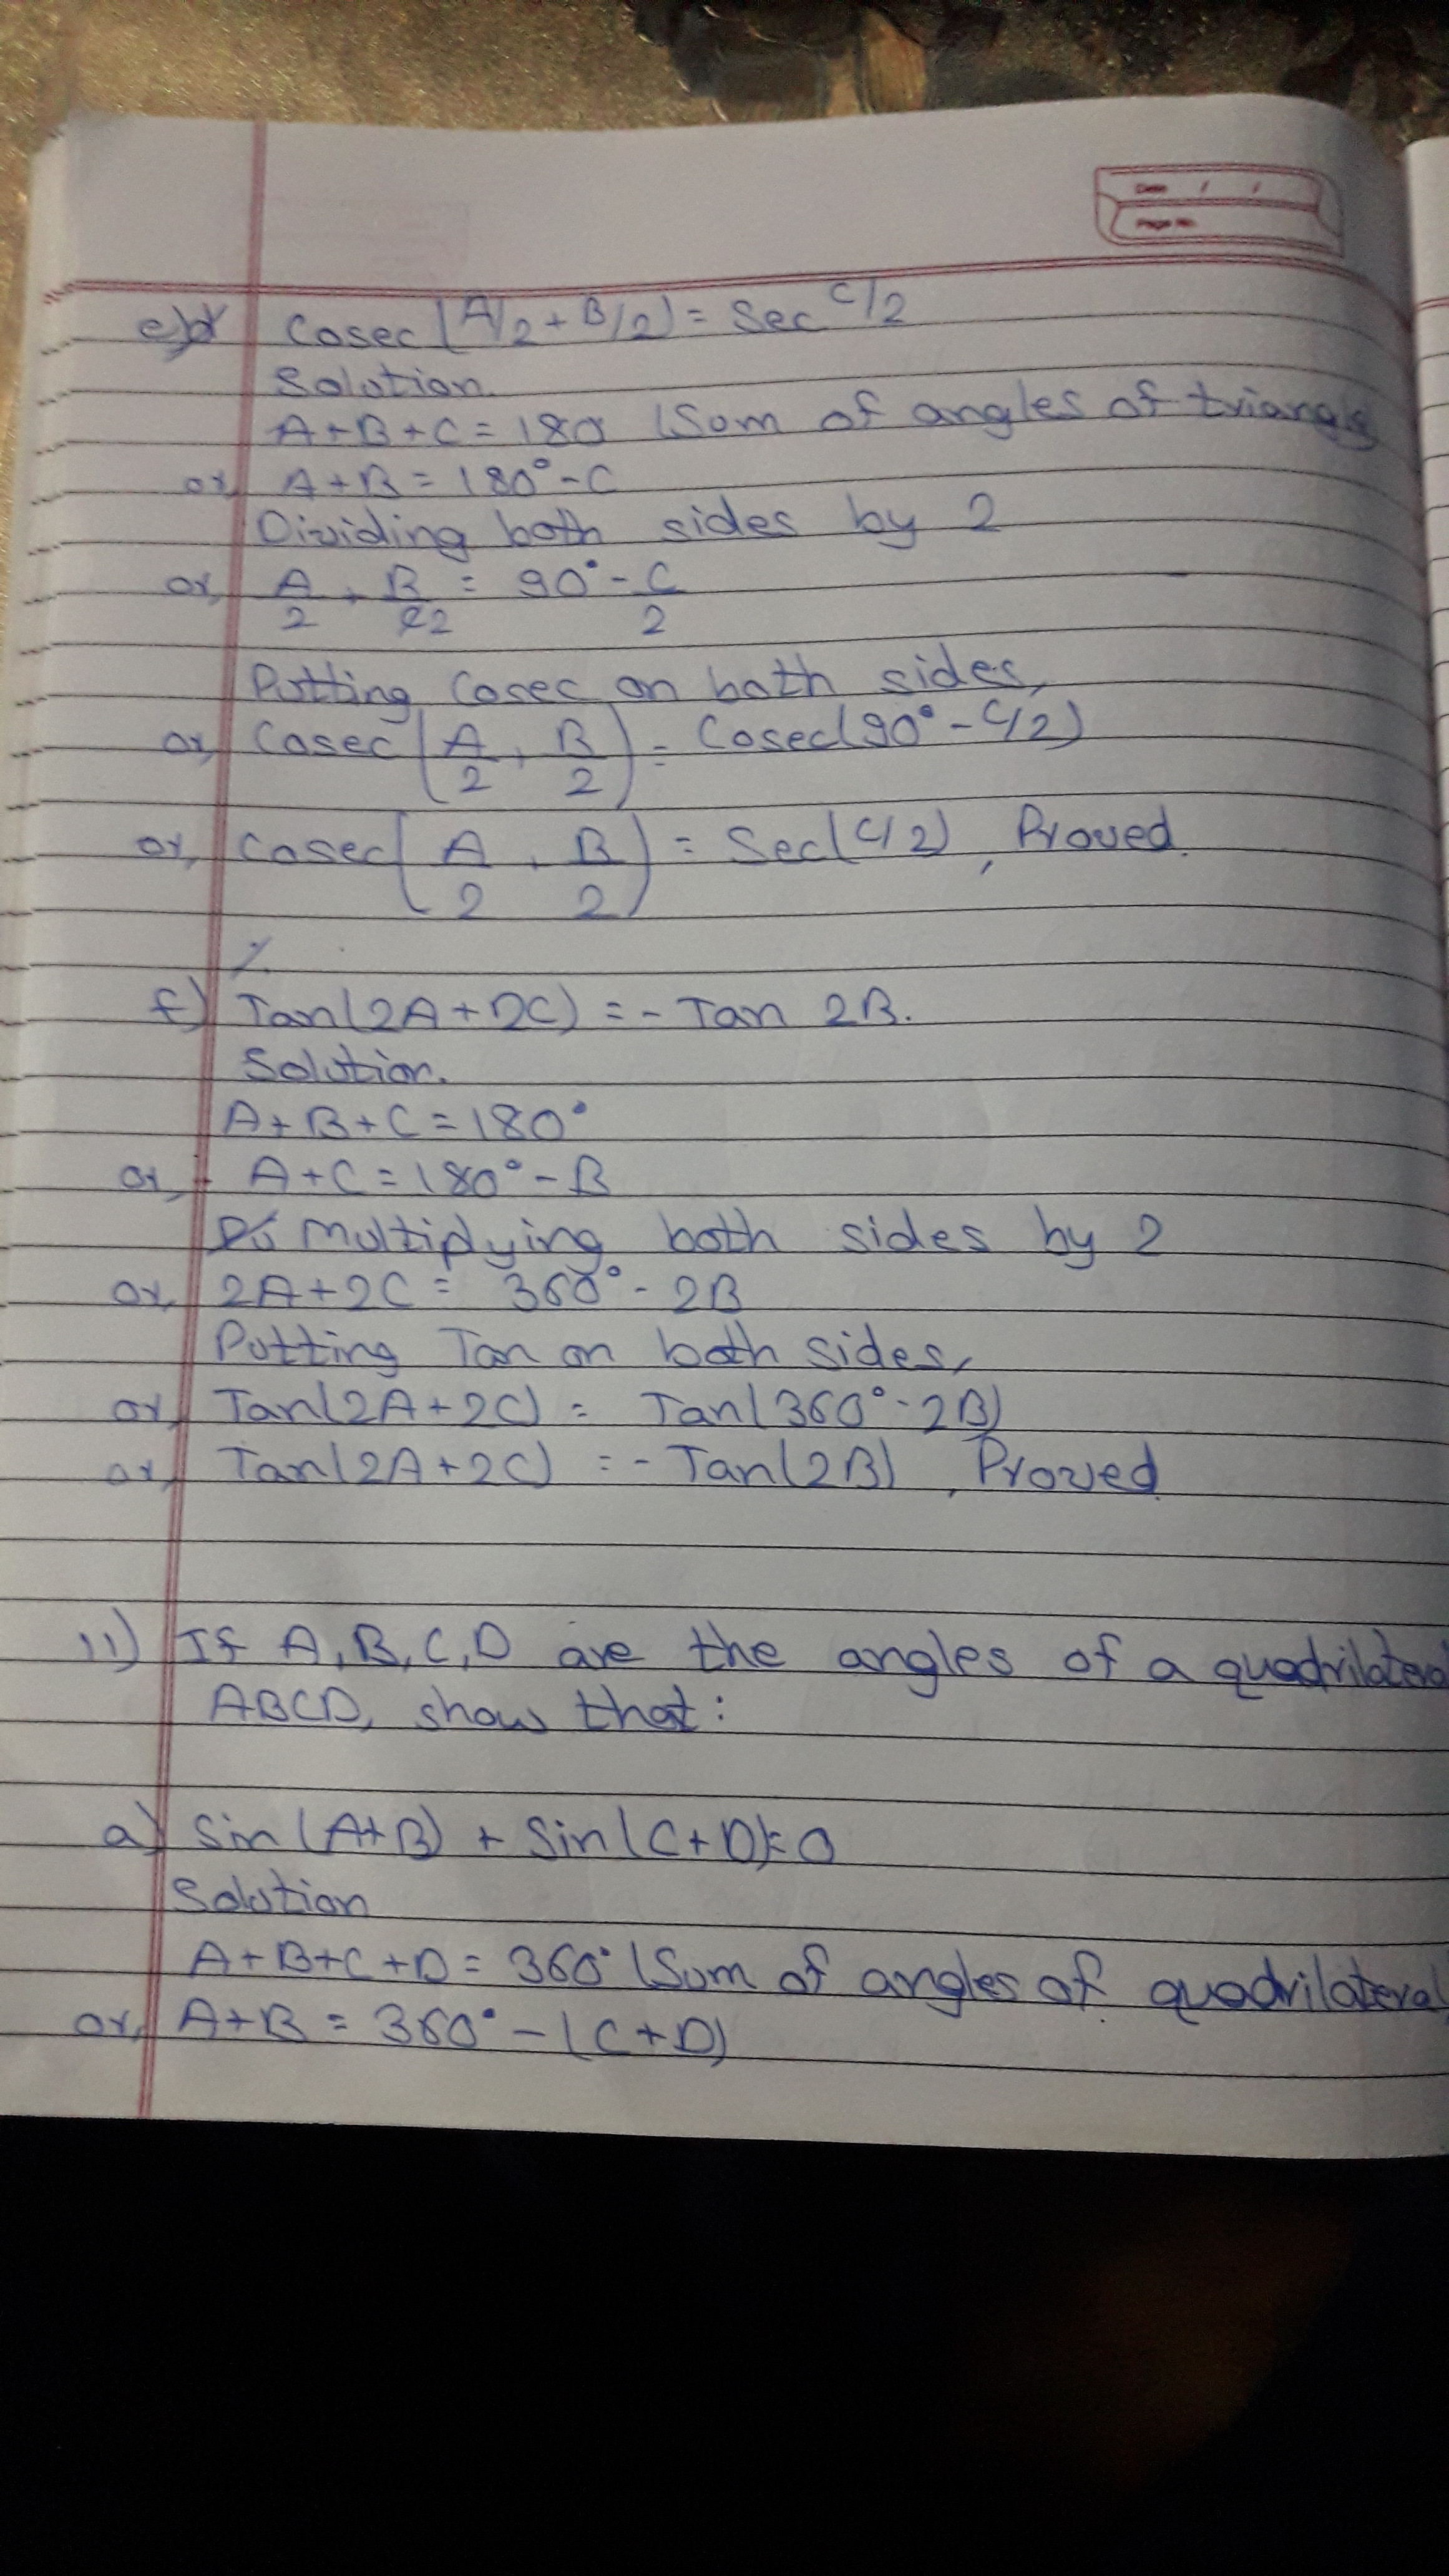 Date / /
Page No.
e) Cosec(A/2 + B/2) = Sec C/2
Solution.
A+B+C = 180 (Sum of angles of triangle
or, A+B = 180° - C
Dividing both sides by 2
or, A/2 + B/2 = 90° - C/2
Putting Cosec on both sides,
or, Cosec(A/2 + B/2) = Cosec(90° - C/2)
or, Cosec(A/2 + B/2) = Sec(C/2), Proved
f) Tan(2A + 2C) = - Tan 2B.
Solution.
A+B+C = 180°
or, A+C = 180° - B
multiplying both sides by 2
or, 2A+2C = 360° - 2B
Putting Tan on both sides,
or, Tan(2A+2C) = Tan(360° - 2B)
or, Tan(2A+2C) = - Tan(2B), Proved
11) If A, B, C, D are the angles of a quadrilateral
ABCD, show that:
a) Sin(A+B) + Sin(C+D) = 0
Solution
A+B+C+D = 360° (Sum of angles of quadrilateral
or, A+B = 360° - (C+D)